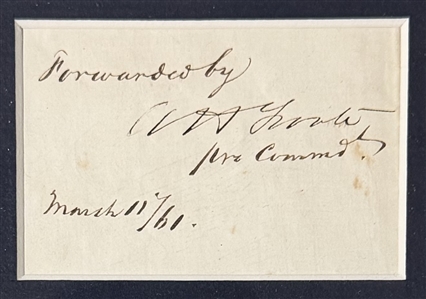 Forwarded by
A H Foote
pro Commdt.
March 11/61.